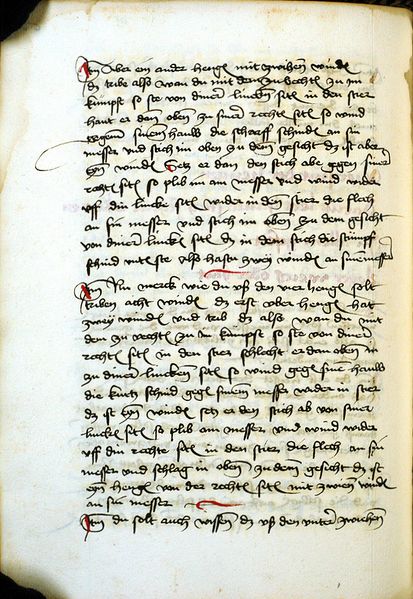 Itm Aber ein ander hengen mit zwaien winden
dz tribe also wan du mit dem zu vechten zu im
kumpst so ste von diner lincken siten in den stier
haut er dan oben zu siner rechten siten so wind
gegen sinem hauw die scharff schnid an sin
messer vnd stich im oben zu dem gesicht dz ist aber
eyn winden Setz er dan den stich abe gegen siner
rechten siten so plib im am messer vnd wind wider
vff din lincke siten wider in den stier die flech
an sin messer vnd stich im oben zu dem gesicht
von diner lincken siten dz in dem stich die stumpf
schnid vnten ste Also hastu zwey winden an sinem messer
Itm Nu merck wie du vß den vier hengen solt
triben acht winden dz erst ober hengen hat
zwey winden vnd trib dz also wan du mit
dem zu vechten zu im kumpst so ste von diner
rechten siten in den stier schlecht er dan oben in
zu diner lincken siten so wind gegen sinem hauw
die kurtz schnid gegen sinem messer wider in stier
dz ist eyn winden setz er den stich ab von siner
lincken siten so plib am messer vnd wind wider
vff din rechte siten in den stier die flech an sin
messer vnd schlag in oben zu dem gesicht dz ist
eyn hengen von der rechten siten mit zweien winden
an sin messer
Itm du solt auch wissen dz vß den vntern zweichen